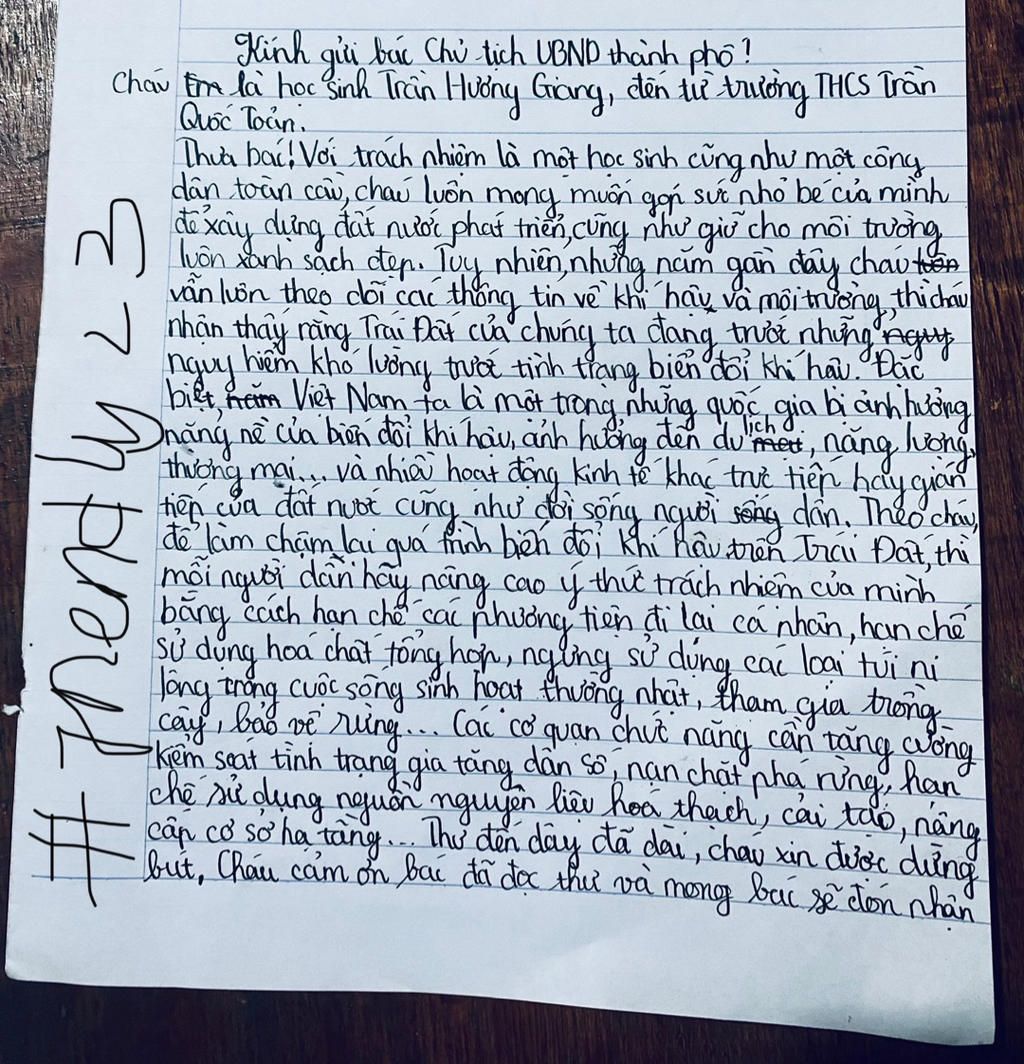 Kính gửi bác Chủ tịch UBND thành phố!
Cháu Em là học sinh Trần Hương Giang, đến từ trường THCS Trần
Quốc Toản.
Thưa bác! Với trách nhiệm là một học sinh cũng như một công
dân toàn cầu, cháu luôn mong muốn góp sức nhỏ bé của mình
để xây dựng đất nước phát triển, cũng như giữ cho môi trường
luôn xanh sạch đẹp. Tuy nhiên, những năm gần đây cháu luôn
vẫn luôn theo dõi các thông tin về khí hậu và môi trường, thì cháu
nhận thấy rằng Trái Đất của chúng ta đang trước những nguy
nguy hiểm khó lường trước tình trạng biến đổi khí hậu. Đặc
biệt, năm Việt Nam ta là một trong những quốc gia bị ảnh hưởng
nặng nề của biến đổi khí hậu, ảnh hưởng đến du lịch, năng lượng,
thương mại... và nhiều hoạt động kinh tế khác trực tiếp hay gián
tiếp của đất nước cũng như đời sống người sống dân. Theo cháu,
để làm chậm lại quá trình biến đổi khí hậu trên Trái Đất, thì
mỗi người dân hãy nâng cao ý thức trách nhiệm của mình
bằng ccách hạn chế các phương tiện đi lại cá nhân, hạn chế
sử dụng hoá chất tổng hợp, ngừng sử dụng các loại túi ni
lông trong cuộc sống sinh hoạt thường nhật, tham gia trồng
cây, bảo vệ rừng... Các cơ quan chức năng cần tăng cường
kiểm soát tình trạng gia tăng dân số, nạn chặt phá rừng, hạn
chế sử dụng nguồn nguyên liệu hoá thạch, cải tạo, nâng
cấp cơ sở hạ tầng... Thư đến đây đã dài, cháu xin được dừng
bút, Cháu cảm ơn bác đã đọc thư và mong bác sẽ đón nhận